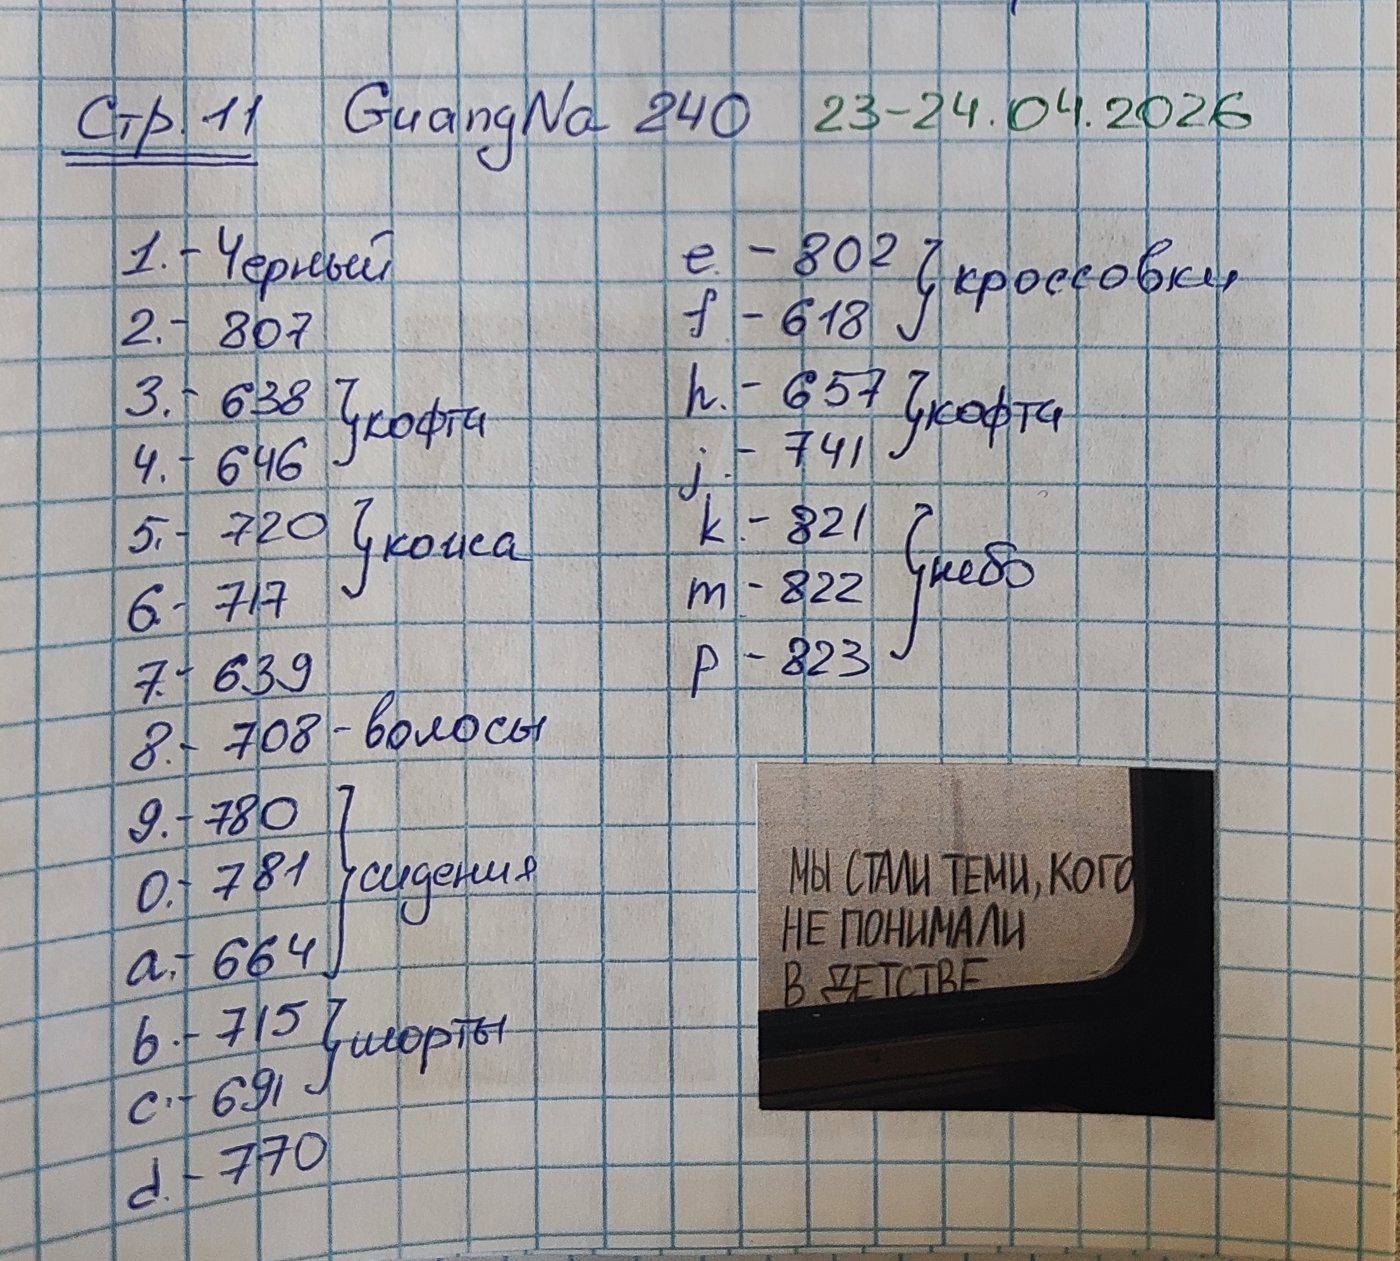 Стр. 11 GuangNa 240 23-24.04.2026
1. - Черный
2. - 807
3. - 638
4. - 646
кофта
5. - 720
6. - 717
кожа
7. - 639
8. - 708 - волосы
9. - 780
0. - 781
a. - 664
сидения
b. - 715
c. - 691
шорты
d. - 770
e. - 802
f. - 618
кроссовки
h. - 657
j. - 741
кофта
k. - 821
m - 822
p - 823
небо
МЫ СТАЛИ ТЕМИ, КОГО
НЕ ПОНИМАЛИ
В ДЕТСТВЕ